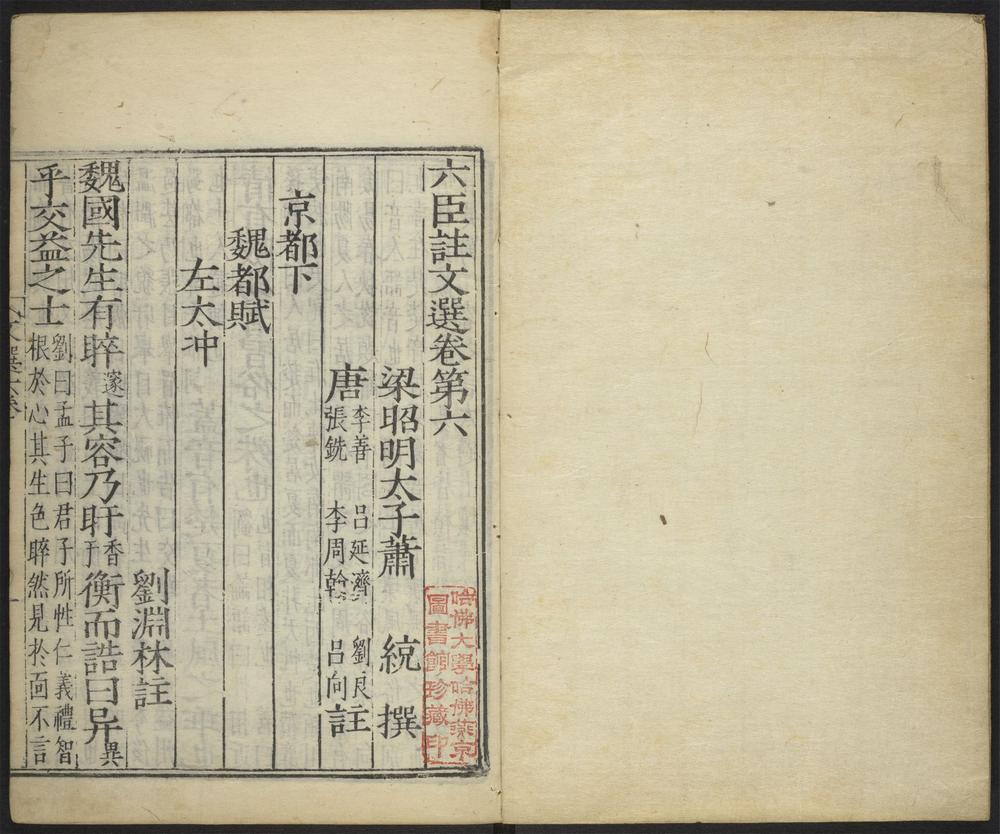 六臣註文選卷第六
梁昭明太子蕭統撰
唐李善呂延濟劉良張銑李周翰呂向註
京都下
魏都賦
左太冲
劉淵林註
魏國先生有睟邃其容乃盱香于衡而誥曰异異
乎交益之士劉曰孟子曰君子所性仁義禮智
根於心其生色睟然見於面不言
哈佛大學哈佛燕京
圖書館珍藏印